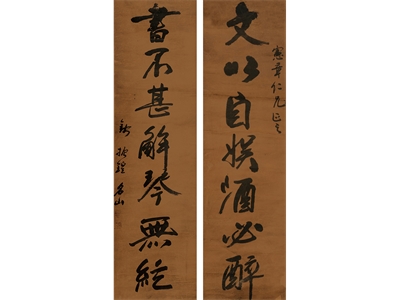 文以自娱酒必醉
憲章仁兄正之
書不甚解琴無絃
名山